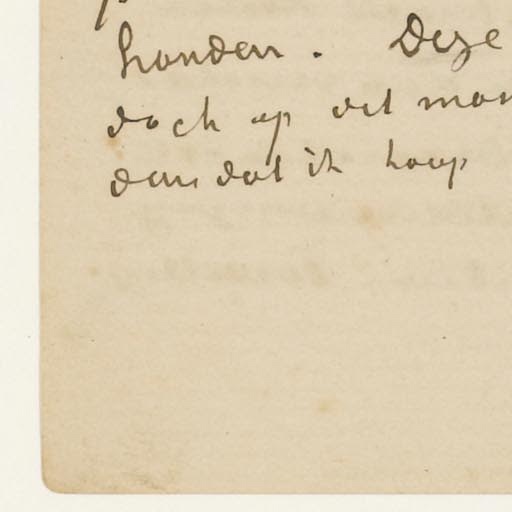 honden. Deze
doch op dit mom
dan dat ik hoop